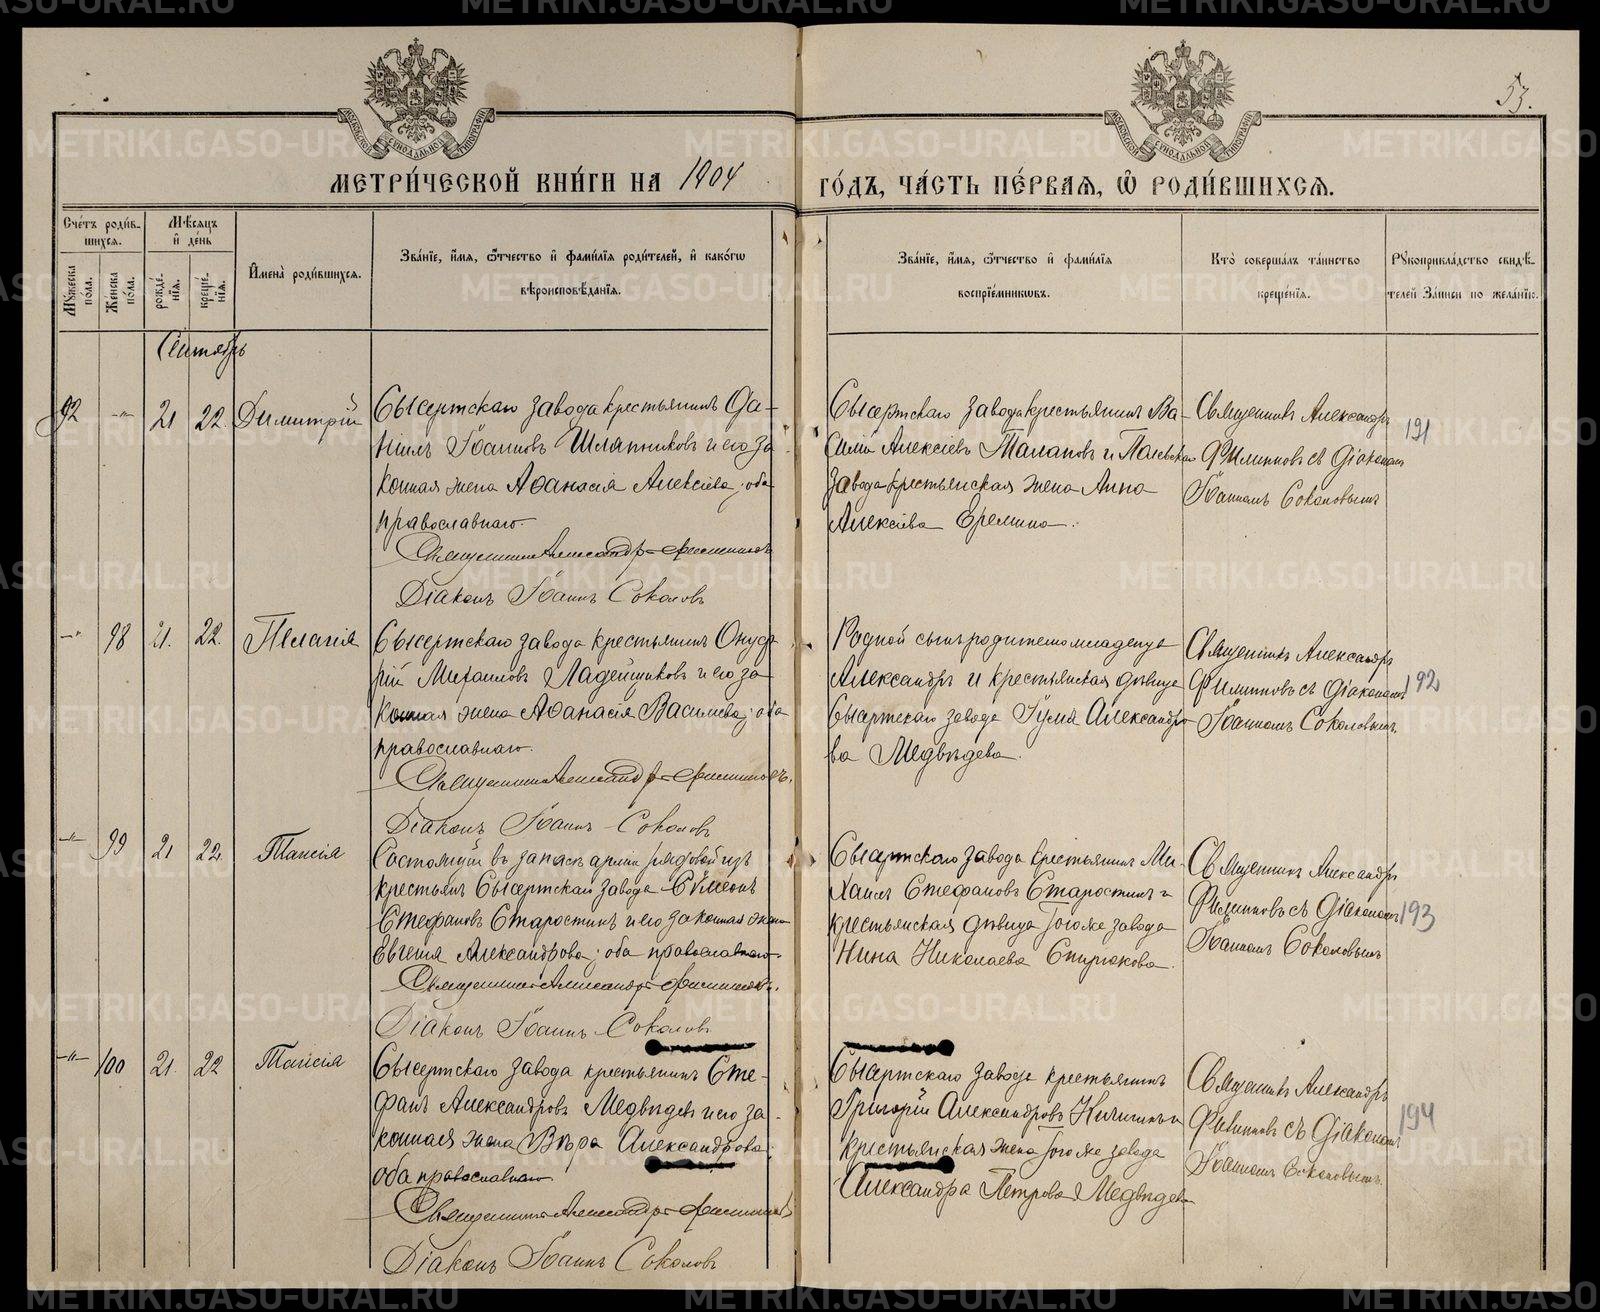 53.
МЕТРИ́ЧЕСКОЙ КНИ́ГИ НА 1904 ГО́ДЪ, ЧА́СТЬ ПЕ́РВАѦ, Ѽ РОДИ́ВШИХСѦ.
Сче́тъ роди́в-
шихся.
Мꙋжеска по́ла.
Же́нска по́ла.
Мѣ́сяцъ
и̂ де́нь
рожде́нїя.
креще́нїя.
И̂мена̀ роди́вшихся.
Зва́нїе, и́мя, ѻ҆́тчество и҆ фами́лїя роди́телей, и҆ како́гѡ
вѣроисповѣ́данїя.
Зва́нїе, и́мя, ѻ҆́тчество и҆ фами́лїя
воспрїе́мникѡвъ.
Кто̀ соверша́лъ та́инство
креще́нїя.
Рꙋкоприкла́дство свидѣ́-
телей За́писи по жела́нїю.
Сентябрь
92 -"- 21 22. Димитрій
Сысертскаго завода крестьянинъ Да-
ніилъ Іоанновъ Шляпниковъ и его за
конная жена Аѳанасія Алексіева; оба
православнаго.
Священникъ Александръ Филипповъ
Діаконъ Іоаннъ Соколовъ
Сысертскаго завода крестьянинъ Ва-
силій Алексіевъ Талаповъ и Полевскаго
завода крестьянская жена Анна
Алексіева Еремина.
Священникъ Александръ
Филипповъ съ Діакономъ
Іоанномъ Соколовымъ
191
-"- 98 21. 22. Пелагія
Сысертскаго завода крестьянинъ Онуф
рій Михаиловъ Ладейщиковъ и его за
конная жена Аѳанасія Васильева; оба
православнаго.
Священникъ Александръ Филипповъ.
Діаконъ Іоаннъ Соколовъ
Родной сынъ родителю младенца
Александръ и крестьянская дѣвица
Сысертскаго завода Іулія Александро
ва Медвѣдева.
Священникъ Александръ
Филипповъ съ Діакономъ
Іоанномъ Соколовымъ.
192
-"- 99 21 22. Таисія
Состоящій въ запасѣ арміи рядовой изъ
крестьянъ Сысертскаго завода Сѵмеонъ
Стефановъ Старостинъ и его законная жена
Евгенія Александрова; оба православнаго.
Священникъ Александръ Филипповъ.
Діаконъ Іоаннъ Соколовъ
Сысертскаго завода крестьянинъ Ми-
хаилъ Стефановъ Старостинъ и
крестьянская дѣвица того же завода
Нина Николаева Спирюкова.
Священникъ Александръ
Филипповъ съ Діакономъ
Іоанномъ Соколовымъ
193
-"- 100 21. 22 Таисія
Сысертскаго завода крестьянинъ Сте-
фанъ Александровъ Медвѣдевъ и его за-
конная жена Вѣра Александрова;
оба православнаго
Священникъ Александръ Филипповъ
Діаконъ Іоаннъ Соколовъ
Сысертскаго завода крестьянинъ
Григорій Александровъ и
крестьянская жена того же завода
Александра Петрова Медвѣдева
Священникъ Александръ
Филипповъ съ Діакономъ
Іоанномъ Соколовымъ.
194
METRIKI.GASO-URAL.RU